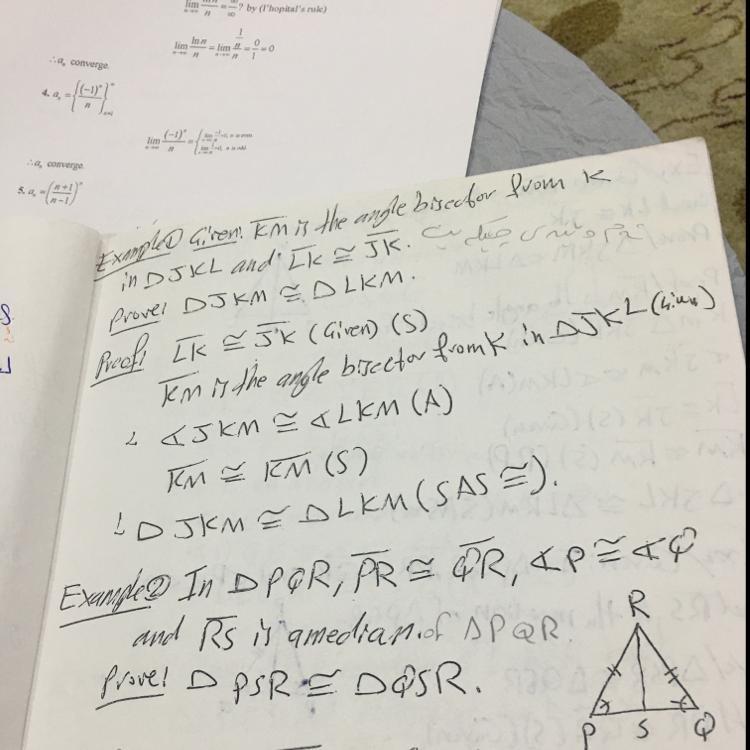 lim ln n/n = ∞/∞ ? by (l'hopital's rule)
lim n→∞ ln n/n = lim n→∞ (1/n)/n = 0/1 = 0
∴ aₙ converge.
4. aₙ = {(-1)ⁿ/n}
lim n→∞ (-1)ⁿ/n =
∴ aₙ converge.
5. aₙ = ((n+1)/(n-1))ⁿ
Example① Given: K̅M̅ is the angle bisector from K
in △JKL and L̅K̅ ≅ J̅K̅.
Prove! △JKM ≅ △LKM.
Proof! L̅K̅ ≅ J̅K̅ (Given) (S)
K̅M̅ is the angle bisector from K in △JKL (Given)
∴ ∢JKM ≅ ∢LKM (A)
K̅M̅ ≅ K̅M̅ (S)
∴ △JKM ≅ △LKM (SAS ≅).
Example② In △PQR, P̅R̅ ≅ Q̅R̅, ∢P ≅ ∢Q
and R̅S̅ is a median of △PQR.
Prove! △PSR ≅ △QSR.
R
P S Q